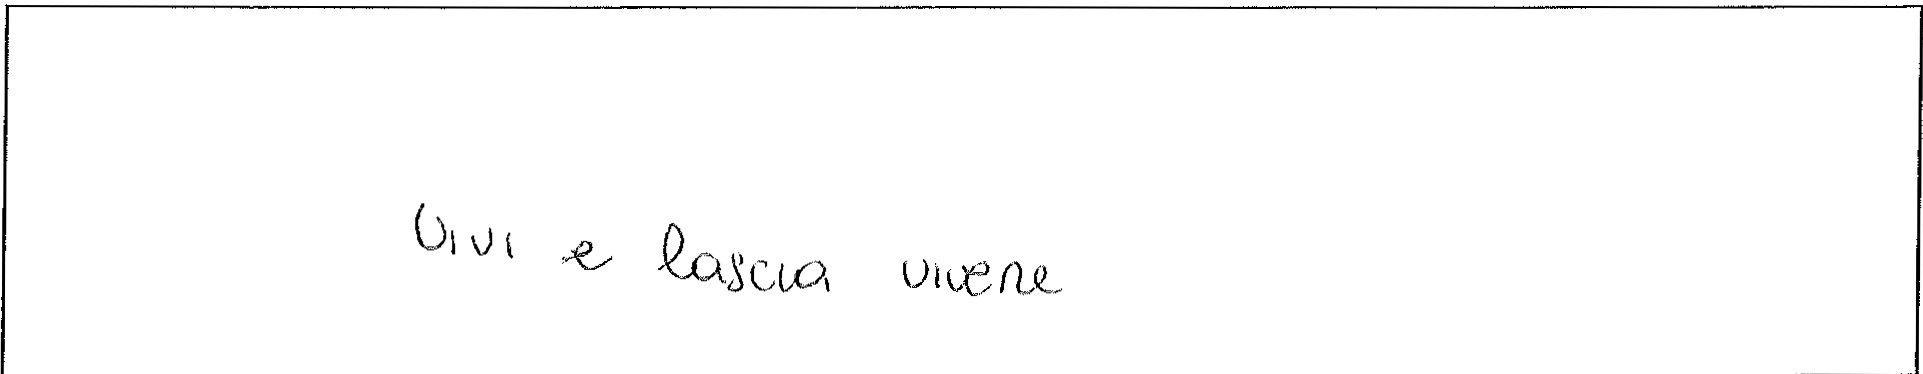 Vivi e lascia vivere